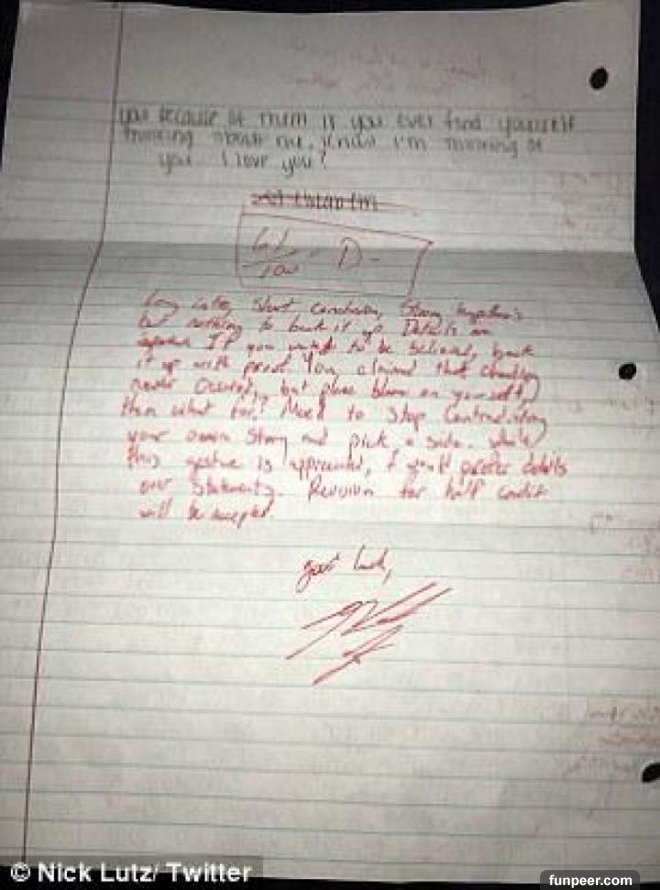 you because of them if you ever find yourself
thinking about me, know I'm thinking of
you. I love you!
61/100 = D-
Long intro, short conclusion, strong hypothesis
but nothing to back it up. Details are
If you wanted to be believed, back
it up with proof. You claimed that cheating
never occured, but place blame on yourself,
then what for? Need to stop contradicting
your own story and pick a side. While
this gesture is appreciated, I would prefer details
over statements. Revision for half credit
will be accepted.
Good luck,
© Nick Lutz/ Twitter
funpeer.com